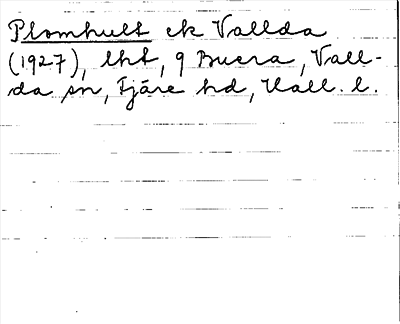 Plomhult ek Vallda
(1927), lht, 9 Buera, Vall-
da sn, Fjäre hd, Hall. l.